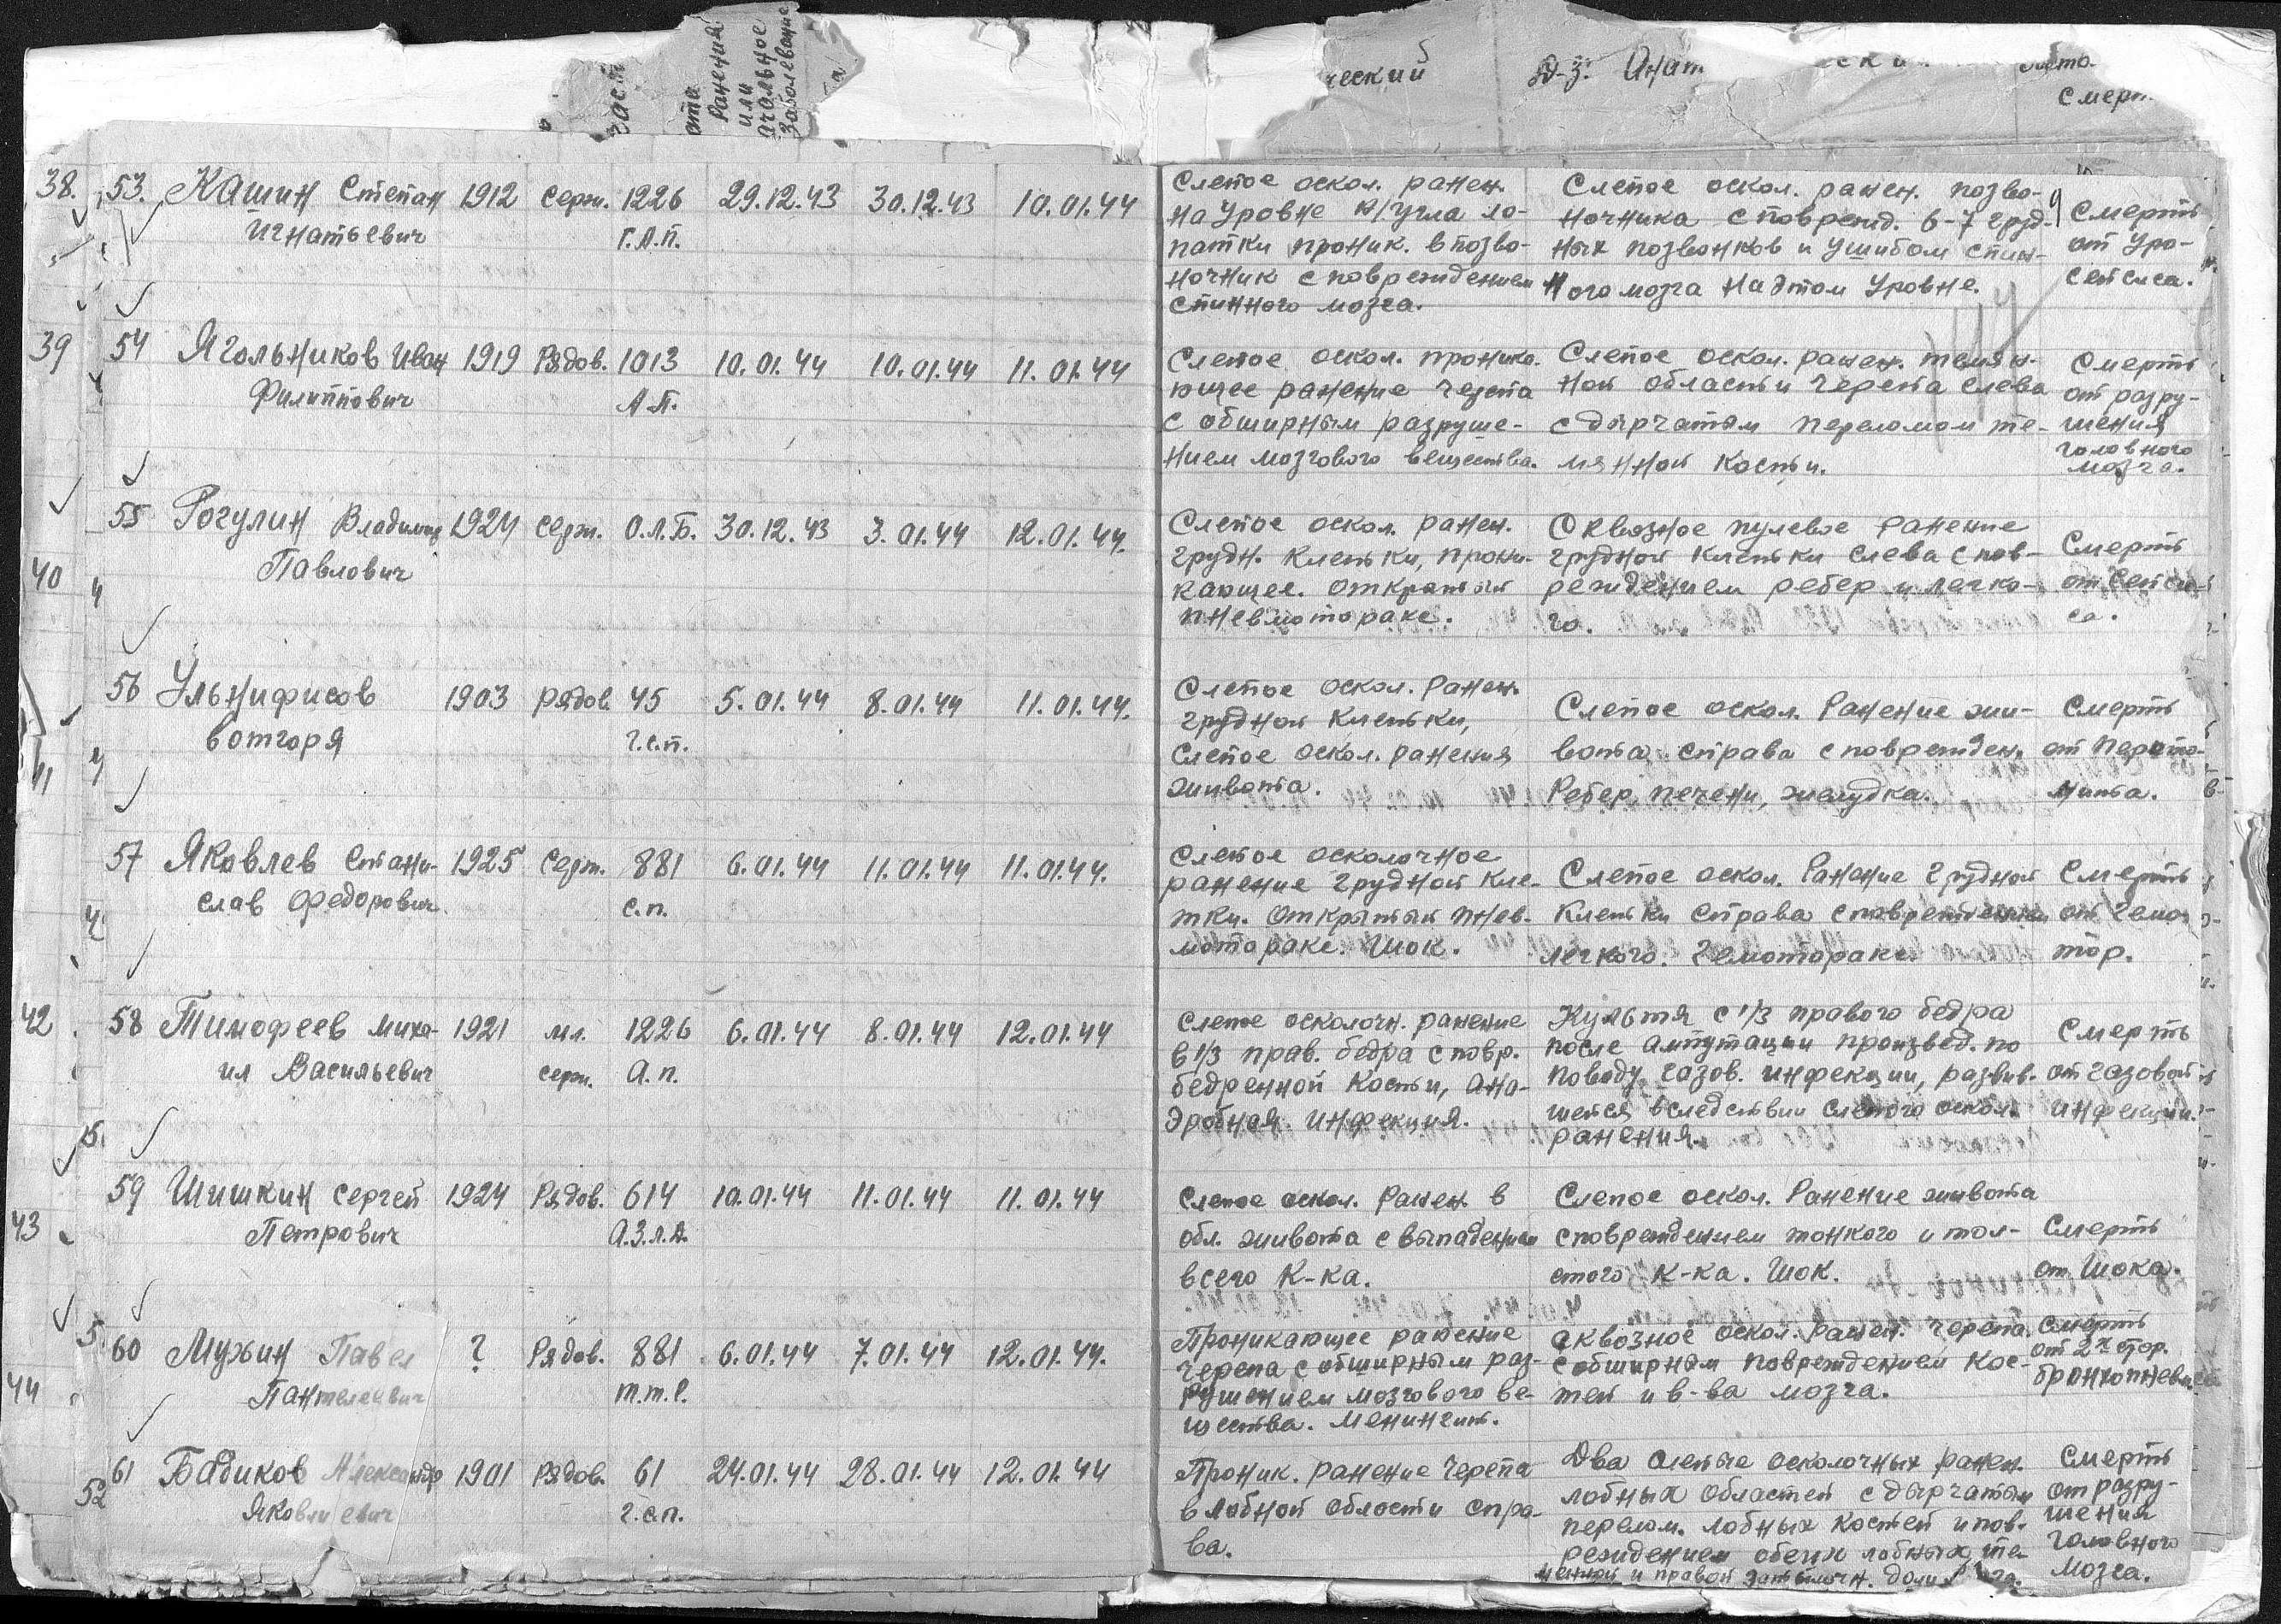 част
Ранения
или
Заболевание
ческий
Д-з:
Смерт
38. 53. Кашин Степан 1912 серж. 1226 29.12.43 30.12.43 10.01.44
Игнатьевич Г.А.П.
Слепое оскол. ранен.
на уровне н/угла ло-
патки проник. в позво-
ночник с повреждением
спинного мозга.
Слепое оскол. ранен. позво-
ночника с поврежд. 6-7 груд-
ных позвонков и ушибом спин-
ного мозга на этом уровне.
Смерть
от уро-
сепсиса.
39 54 Ягольников Иван 1919 Рядов. 1013 10.01.44 10.01.44 11.01.44
Филиппович А.П.
Слепое оскол. проника-
ющее ранение черепа
с обширным разруше-
нием мозгового вещества.
Слепое оскол. ранен. темян-
ной области черепа слева
с дырчатым переломом те-
мянной кости.
Смерть
от разру-
шения
головного
мозга.
55 Рогулин Владимир 1924 серж. О.Л.Б. 30.12.43 3.01.44 12.01.44.
Павлович
40
Слепое оскол. ранен.
грудн. клетки, прони-
кающее. открытый
пневмоторакс.
Сквозное пулевое ранение
грудной клетки слева с пов-
реждением ребер и легко-
го.
Смерть
от сепси-
са.
56 Ульнифисов 1903 рядов. 45 5.01.44 8.01.44 11.01.44.
Вотгоря г.с.п.
41
Слепое оскол. Ранен.
грудной клетки,
Слепое оскол. ранения
живота.
Слепое оскол. Ранение жи-
вота справа с поврежден.
Ребер, печени, желудка.
Смерть
от Перито-
нита.
57 Яковлев Стани- 1925 Серж. 881 6.01.44 11.01.44 11.01.44.
слав Федорович с.п.
Слепое осколочное
ранение грудной кле-
тки. Открытый пнев-
моторакс. Шок.
Слепое оскол. Ранение грудной
клетки справа с повреждением
легкого. Гемоторакс.
Смерть
от гемо-
тор.
42 58 Тимофеев Миха- 1921 мл. 1226 6.01.44 8.01.44 12.01.44
ил Васильевич серж. А.п.
Слепое осколочн. ранение
в 1/3 прав. бедра с повр.
бедренной кости, Ана-
эробная инфекция.
Культя с 1/3 правого бедра
после ампутации произвед. по
поводу газов. инфекции, развив-
шейся вследствии слепого оскол.
ранения.
Смерть
от газовой
инфекции.
59 Шишкин Сергей 1924 Рядов. 614 10.01.44 11.01.44 11.01.44
Петрович А.З.л.А.
43
Слепое оскол. Ранен. в
обл. живота с выпадением
всего К-ка.
Слепое оскол. Ранение живота
с повреждением тонкого и тол-
стого К-ка. Шок.
Смерть
от Шока.
60 Мухин Павел ? Рядов. 881 6.01.44 7.01.44 12.01.44.
Пантелеевич
44
Проникающее ранение
черепа с обширным раз-
рушением мозгового ве-
щества. Менингит.
Сквозное оскол. Ранен. черепа
с обширным повреждением кос-
тей и в-ва мозга.
Смерть
от 2х стор.
бронхопневм.
61 Бадиков Александр 1901 Рядов. 61 24.01.44 28.01.44 12.01.44
Яковлевич г.с.п.
52
Проник. ранение черепа
в лобной области спра-
ва.
Два слепые осколочных ранен.
лобных областей с дырчатым
перелом. лобных костей и пов-
реждением обеих лобных, те-
менной и правой затылочн. доли
Смерть
от разру-
шения
головного
мозга.